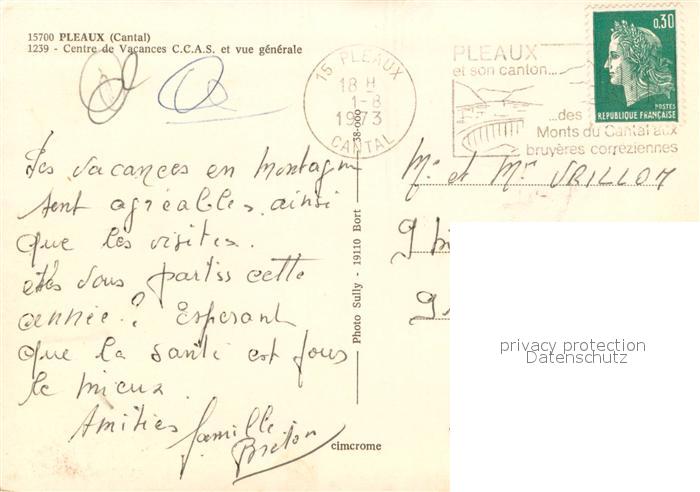 15700 PLEAUX (Cantal)
1239 - Centre de Vacances C.C.A.S. et vue générale
15 PLEAUX
18 H
1-8
1973
CANTAL
PLEAUX
et son canton...
...des
Monts du Cantal aux
bruyères corréziennes
0,30
POSTES
REPUBLIQUE FRANÇAISE
Les vacances en montagne
sont agréables ainsi
que les visites.
etes vous partis cette
année ? Esperant
que la santé est pour
le mieux.
Amitiés famille
Breton
Photo Sully - 19110 Bort
38-000
cimcrome
Mr et Mme VRILLON
9
9
privacy protection
Datenschutz